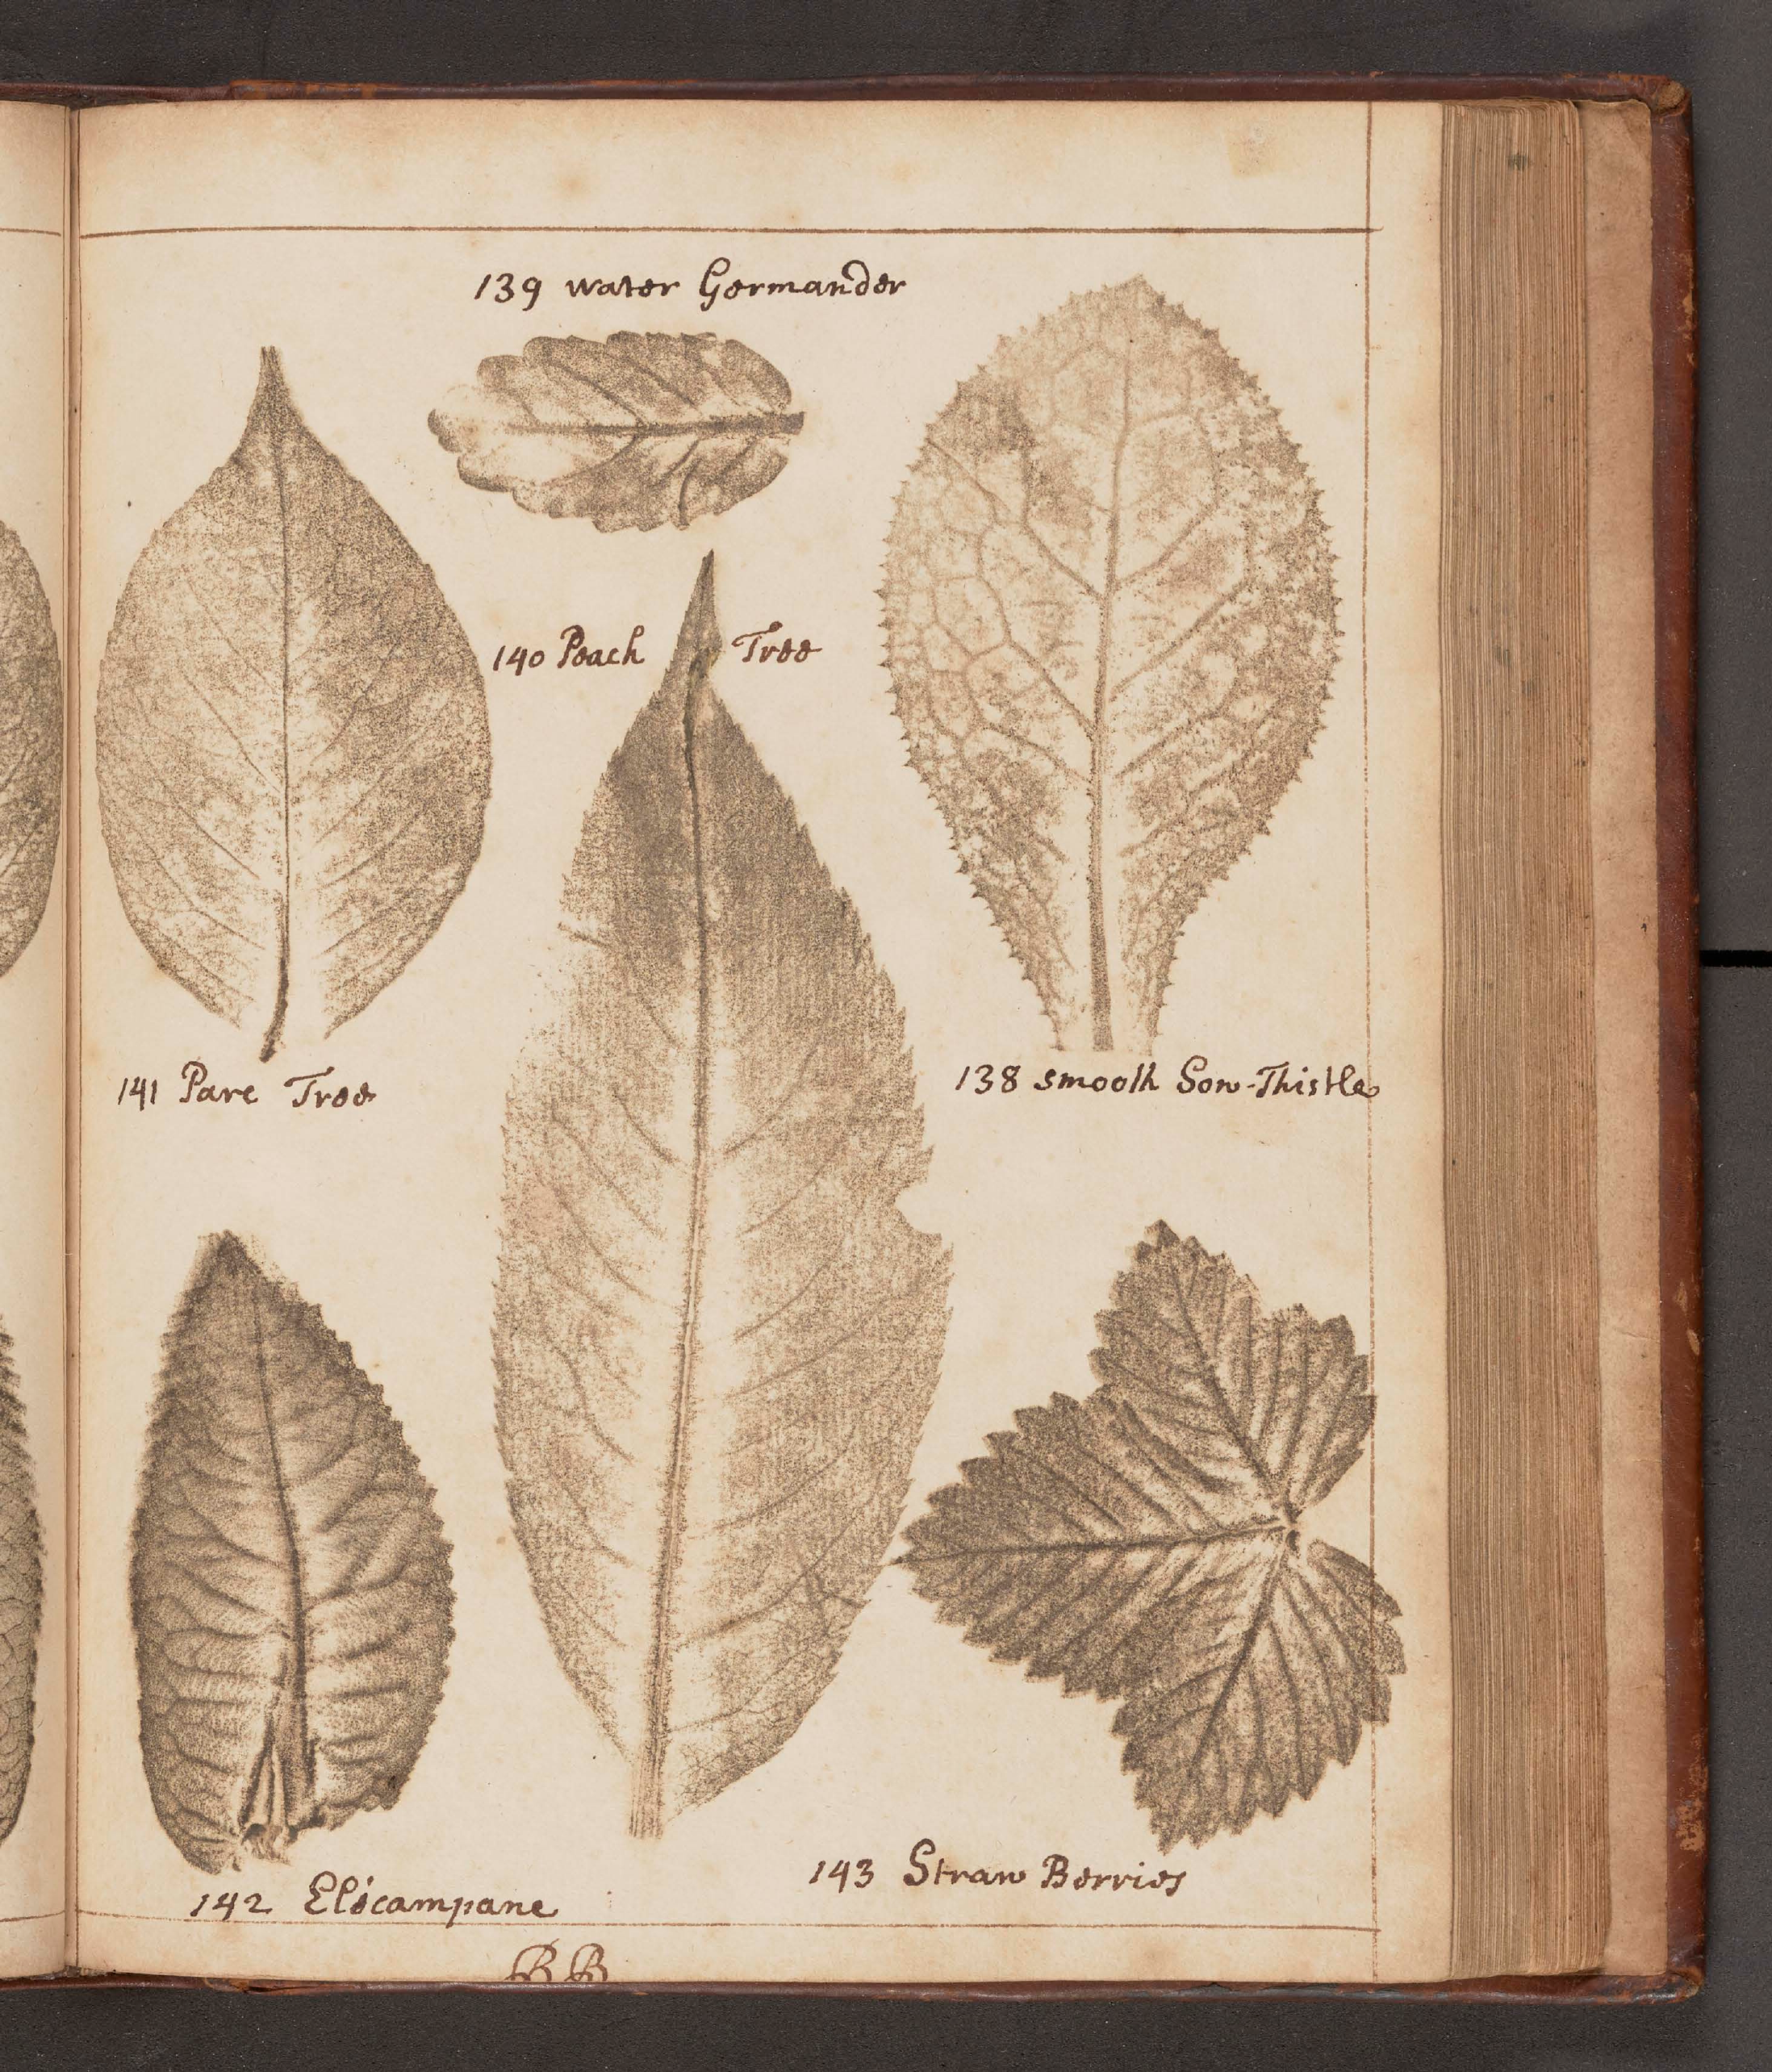 139 water Germander
140 Peach Tree
141 Pare Tree
138 smooth Sow-Thistle
142 Elecampane
143 Straw Berries
BB